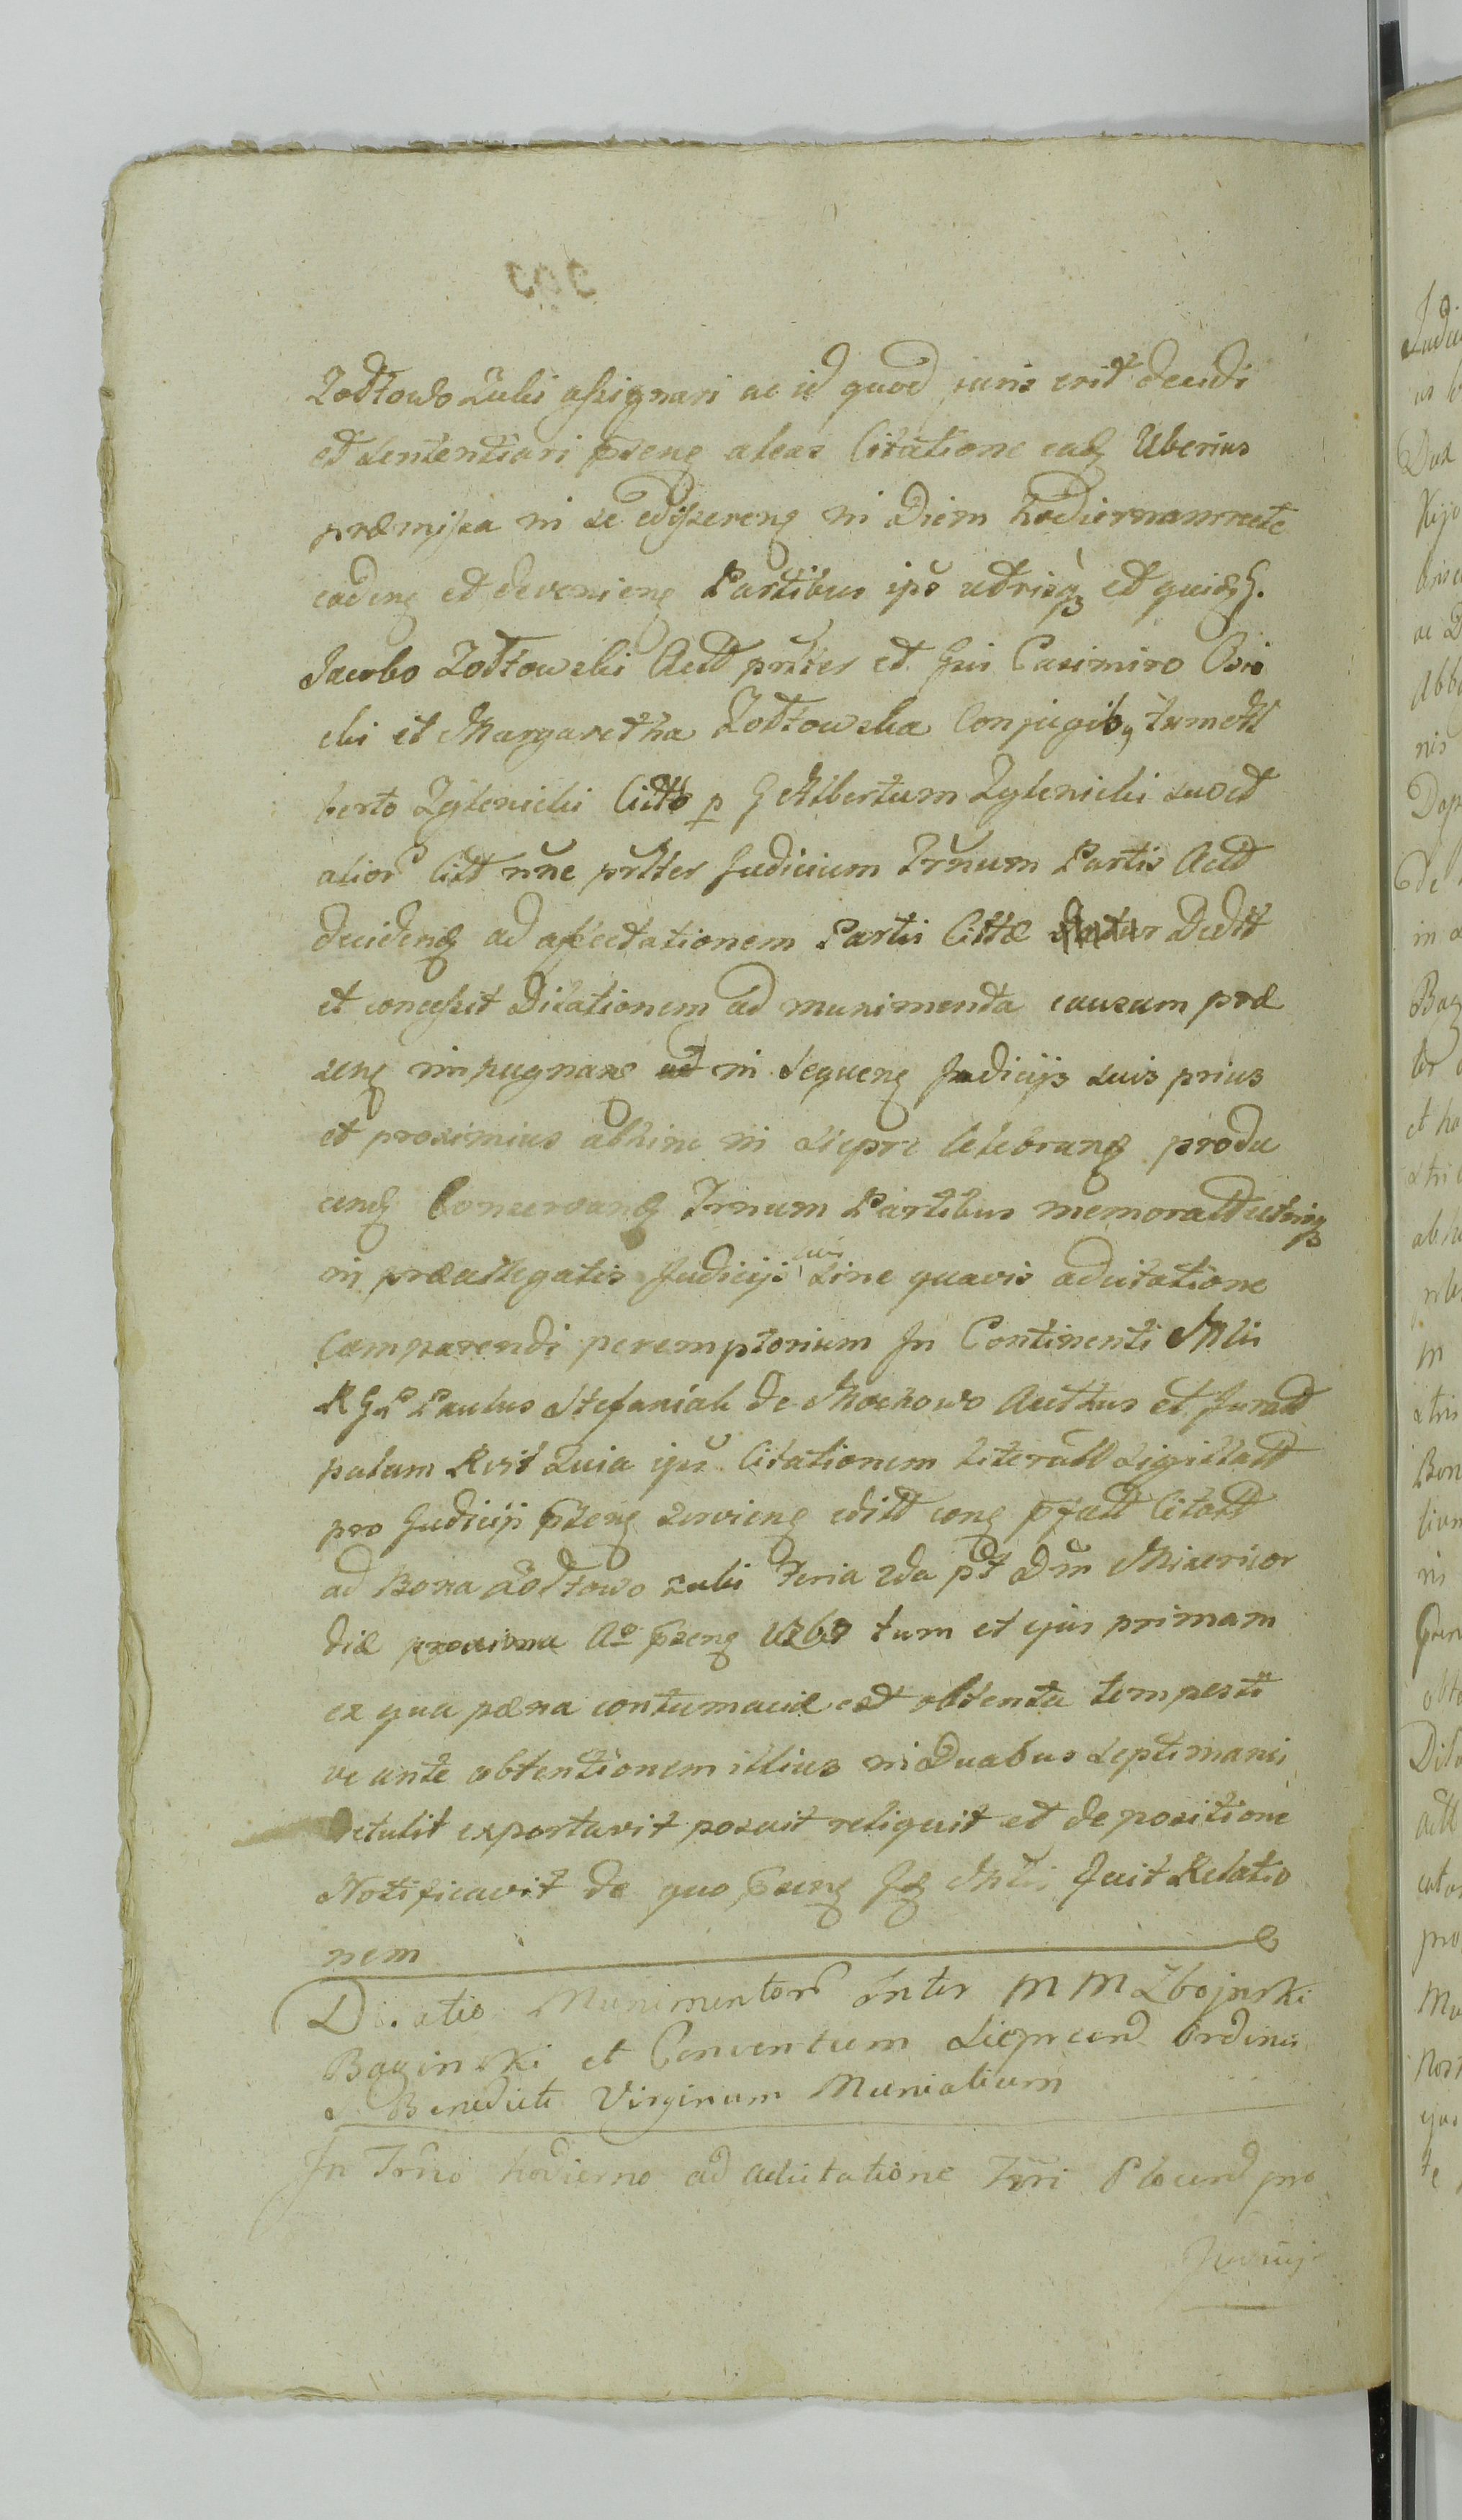 Zołtowo Zuki assignari ac id quod juris erit decidi
et sententiari praeseng alias Citatione eadg Uberius
præmissa in se edisereng in Diem hodiernam recte
cadeng et devenieng Partibus ips utrisq et quidg G.
Jacobo Zołtowski Actt prnter et Gsi Casimiro
ski et Margaretha Zołtowska Conjugib9 tum
berto Zglenicki Cittô p G Albertum Zglenicki suo et
alior Citt nõne prnter Judicium Trnum Partis Actt
decideng ad affectationem Partis Cittæ Dedit
et concessit Dilationem ad munimenta causam præ
seng impugnan ad in sequeng Judicijs suis prius
et proximius abhinc in Siepre celebrang produ
ceng Conservang Trnum Partibus memoratt utrisq
in præallegatis Judicijs suis sine quavis adcitatione
Comparendi peremptorium In Continenti Mlis
R Paulus Stefaniak de Mochowo Authus et Juratt
palam Rvit Quia ipse Citationem literatt Sigillatt
pro Judicijs praeseng servieng editt cong pfatt Citatt
ad Bona Zołtowo Zuki Feria 2da pt Dm Misericor
diæ proxima Ao praeseng tum et ejus primam
ex qua pæna contumaciæ est obtenta tempesti
ve ante obtentionem illius in Duabus Septimanis
Detulit exportavit posuit reliquit et de positione
Notificavit de quo praeseng fecit Relatio
nem
Dilatio Munimentor Inter M M Zbojnski
Baginski et Conventum Siepreens Ordinis
S Benedicti Virginum Monialium
In Trno hodierno ad adcitatione Tri Plocens pro
Judicij